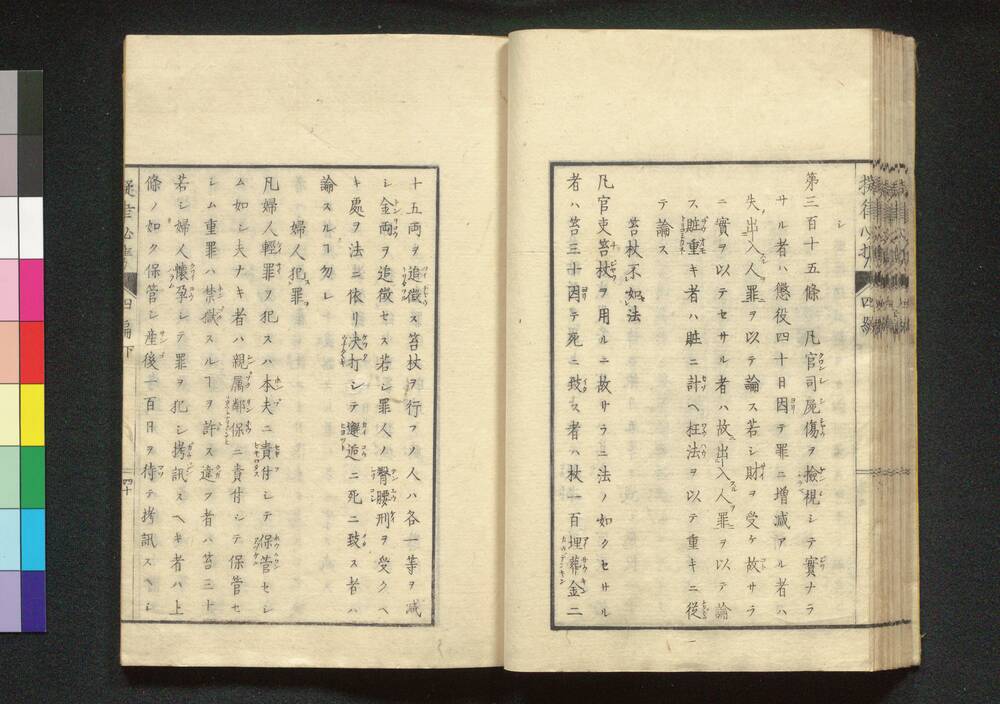 第三百十五條 凡官司屍傷ヲ撿視シテ實ナラ
サル者ハ懲役四十日因テ罪ニ增減アル者ハ
失出入人罪ヲ以テ論ス若シ財ヲ受ケ故サラ
ニ實ヲ以テセサル者ハ故出入人罪ヲ以テ論
ス贓重キ者ハ贓ニ計ヘ枉法ヲ以テ重キニ從
テ論ス
笞杖不如法
凡官吏笞杖ヲ用ルニ故サラニ法ノ如クセサル
者ハ笞三十因テ死ニ致ス者ハ杖一百埋葬金二
十五兩ヲ追徵ス笞杖ヲ行フノ人ハ各一等ヲ減
シ金兩ヲ追徵セス若シ罪人ノ臀腰刑ヲ受クヘ
キ處ヲ法ニ依リ决打シテ邂逅ニ死ニ致ス者ハ
論スルヿ勿レ
婦人犯罪
凡婦人輕罪ヲ犯スハ本夫ニ責付シテ保管セシ
ム如シ夫ナキ者ハ親属鄰保ニ責付シテ保管セ
シム重罪ハ禁獄スルヿヲ許ス違フ者ハ笞三十
若シ婦人懷孕シテ罪ヲ犯シ拷訊スヘキ者ハ上
條ノ如ク保管シ產後一百日ヲ待テ拷訊スヘシ
四編下
四十